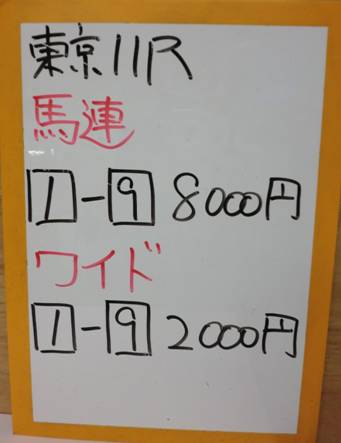 東京11R
馬連
1-9 8000円
ワイド
1-9 2000円